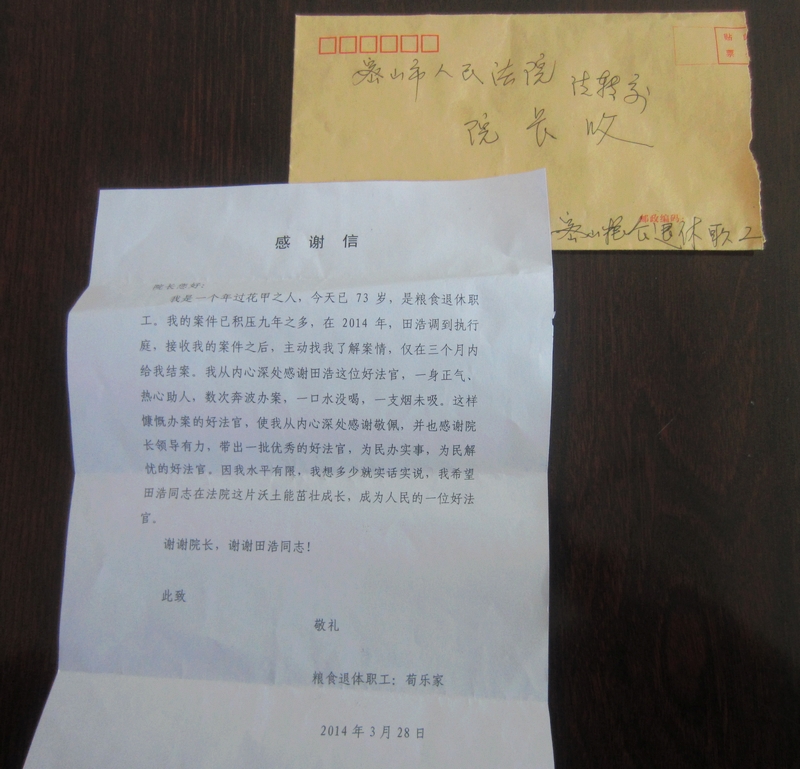 贴
票
密山市人民法院 请转交
院长收
邮政编码
密山粮食退休职工
感谢信
院长您好:
我是一个年过花甲之人，今天已 73 岁，是粮食退休职
工。我的案件已积压九年之多，在 2014 年，田浩调到执行
庭，接收我的案件之后，主动找我了解案情，仅在三个月内
给我结案。我从内心深处感谢田浩这位好法官，一身正气、
热心助人，数次奔波办案，一口水没喝，一支烟未吸。这样
慷慨办案的好法官，使我从内心深处感谢敬佩，并也感谢院
长领导有力，带出一批优秀的好法官，为民办实事，为民解
忧的好法官。因我水平有限，我想多少就实话实说，我希望
田浩同志在法院这片沃土能茁壮成长，成为人民的一位好法
官。
谢谢院长，谢谢田浩同志！
此致
敬礼
粮食退体职工：荀乐家
2014 年 3 月 28 日